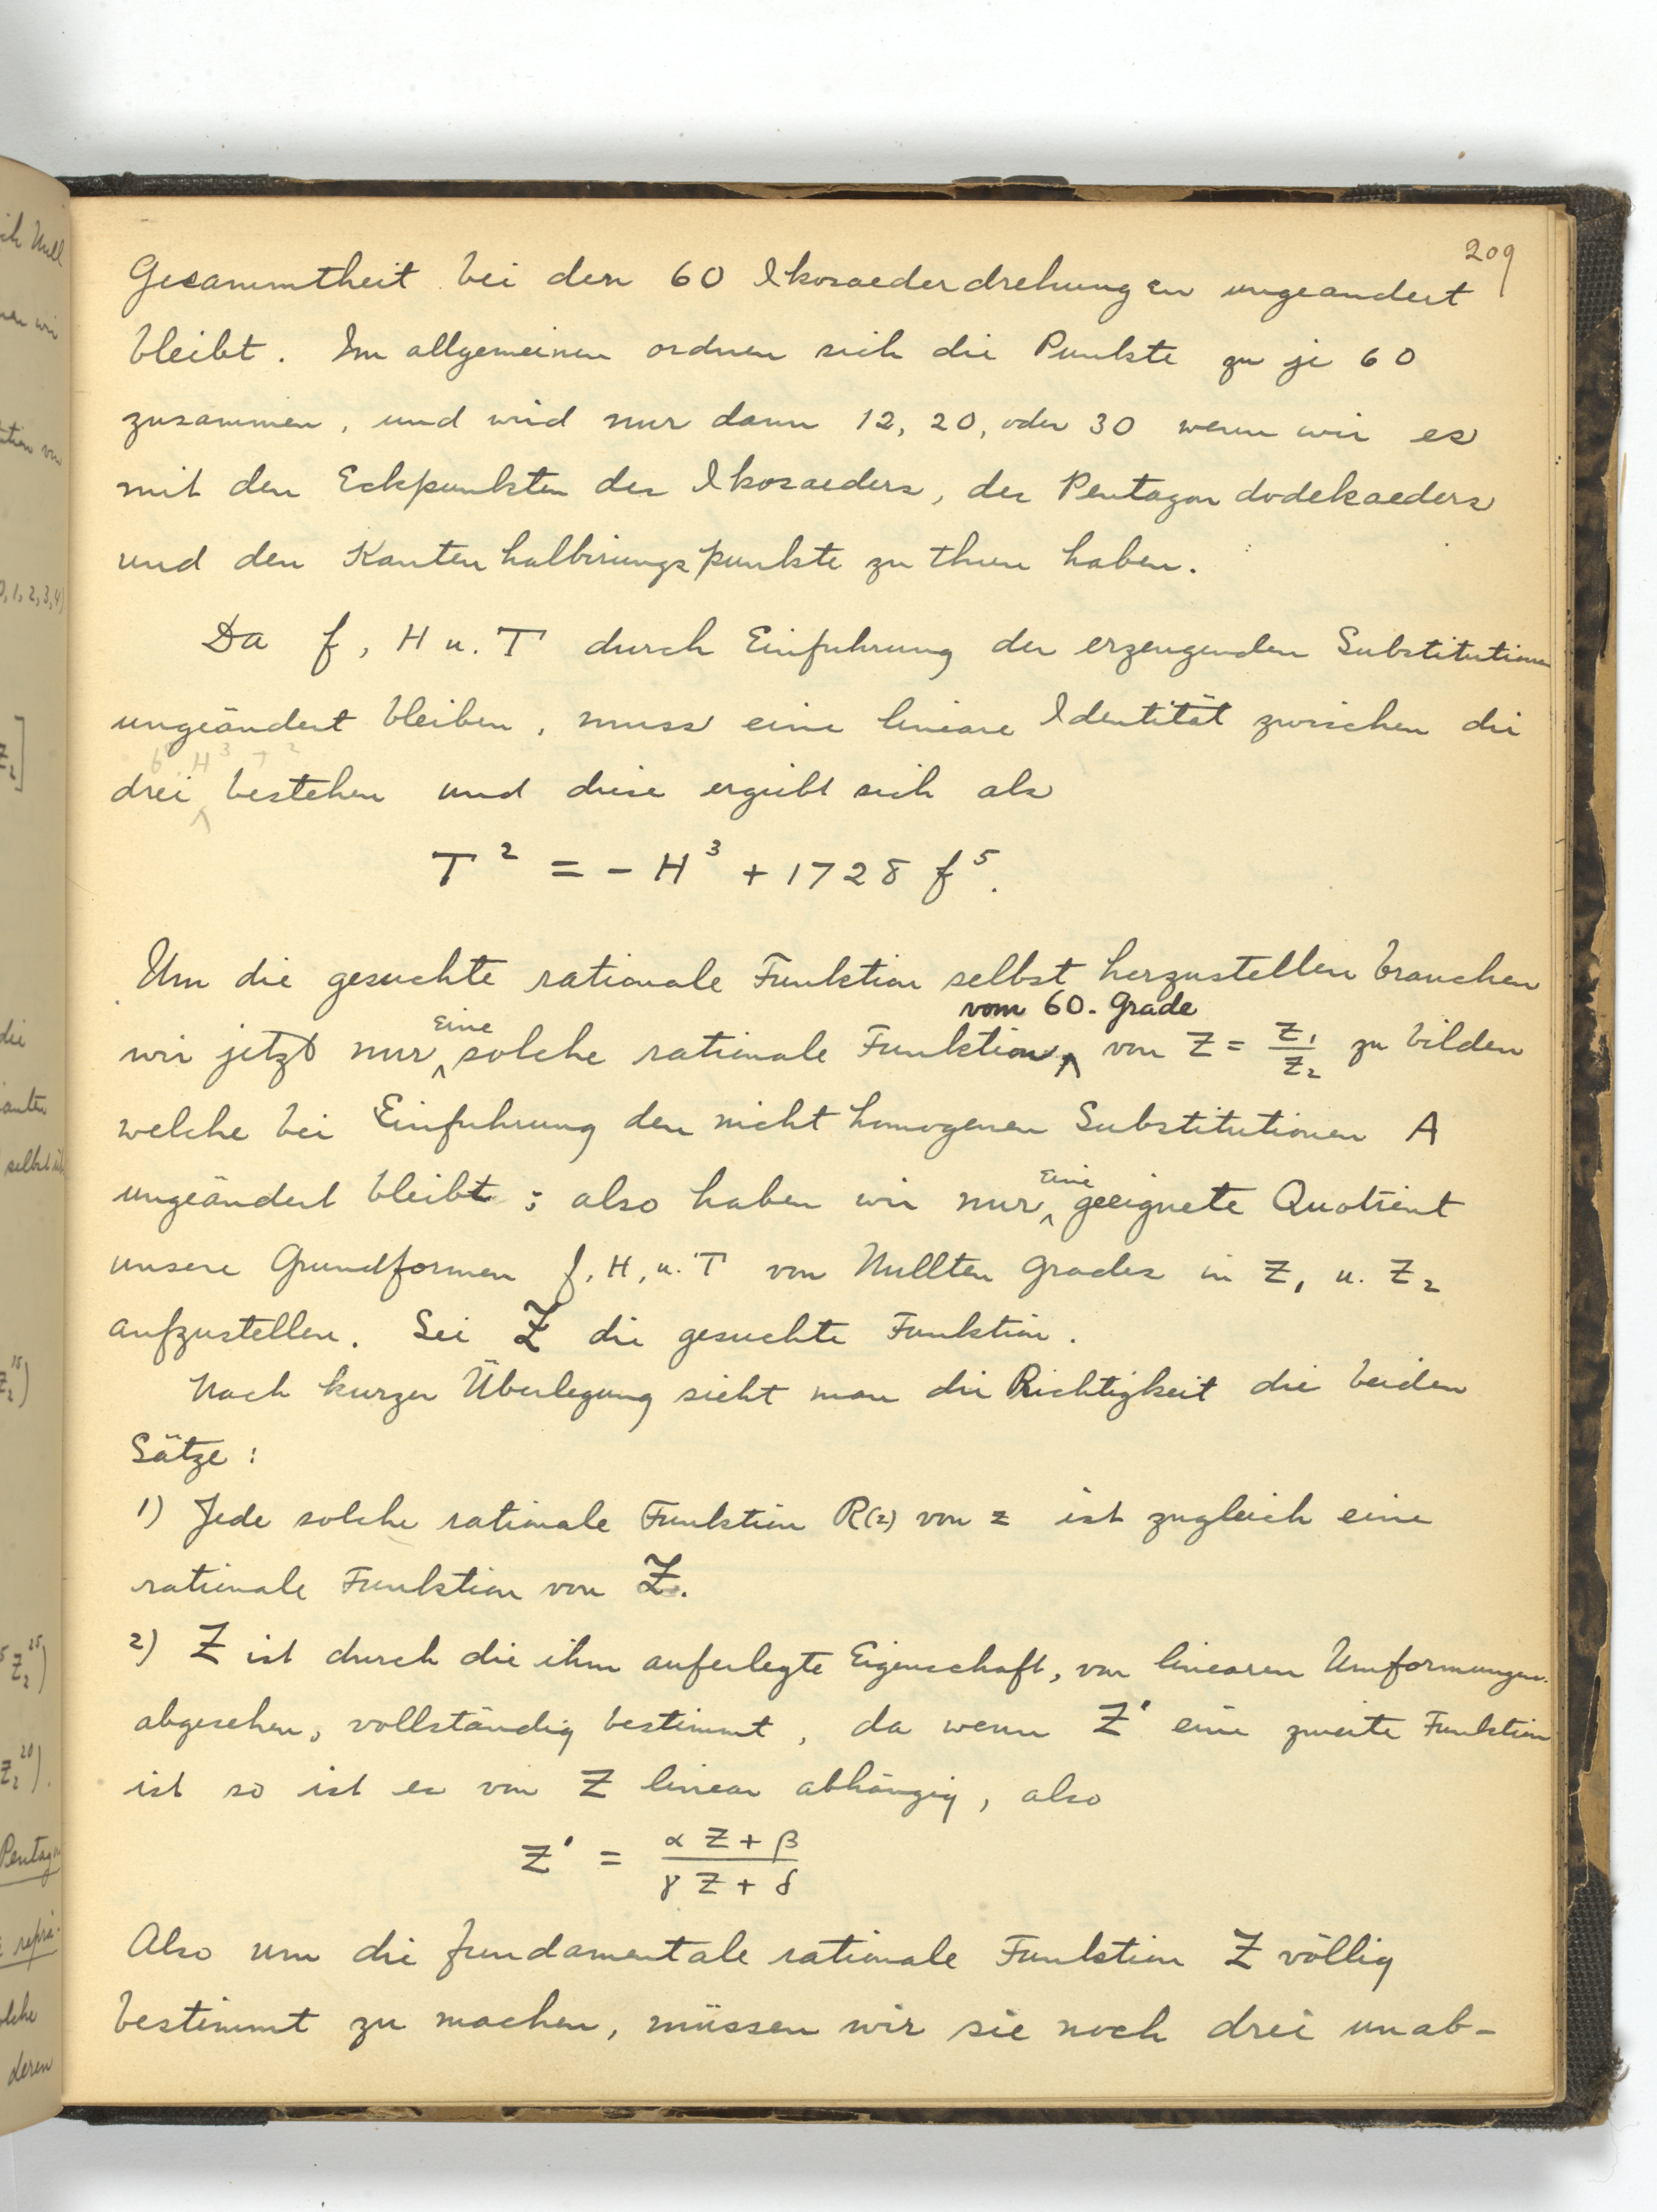 209
Gesammtheit bei den 60 Ikosaederdrehungen ungeandert
bleibt. Im allgemeinen ordnen sich die Punkte zu je 60
zusammen, und wird nur dann 12, 20, oder 30 wenn wir es
mit den Eckpunkten des Ikosaeders, des Pentagondodekaeders
und den Kantenhalbirungspunkte zu thun haben.
Da f, H u. T durch Einfuhrung der erzeugenden Substitutionen
ungeändert bleiben, muss eine lineare Identität zwischen die
f⁵ H³ T²
drei bestehen und diese ergiebt sich als
T² = - H³ + 1728 f⁵.
Um die gesuchte rationale Funktion selbst herzustellen brauchen
wir jetzt nur eine solche rationale Funktion vom 60. Grade von Z = Z₁/Z₂ zu bilden
welche bei Einfuhrung den nicht homogenen Substitutionen A
ungeändert bleibt ; also haben wir nur eine geeignete Quotient
unsere Grundformen f, H, u. T von Nullten Grades in Z₁ u. Z₂
aufzustellen. Sei Z die gesuchte Funktion.
Nach kurzer Überlegung sieht man die Richtigkeit die beiden
Sätze :
1) Jede solche rationale Funktion R(z) von z ist zugleich eine
rationale Funktion von Z.
2) Z ist durch die ihm auferlegte Eigenschaft, von linearen Umformungen
abgesehen, vollständig bestimmt, da wenn Z' eine zweite Funktion
ist so ist es von Z linear abhängig, also
Z' = (α Z + β)/(γ Z + δ)
Also um die fundamentale rationale Funktion Z völlig
bestimmt zu machen, müssen wir sie noch drei unab-